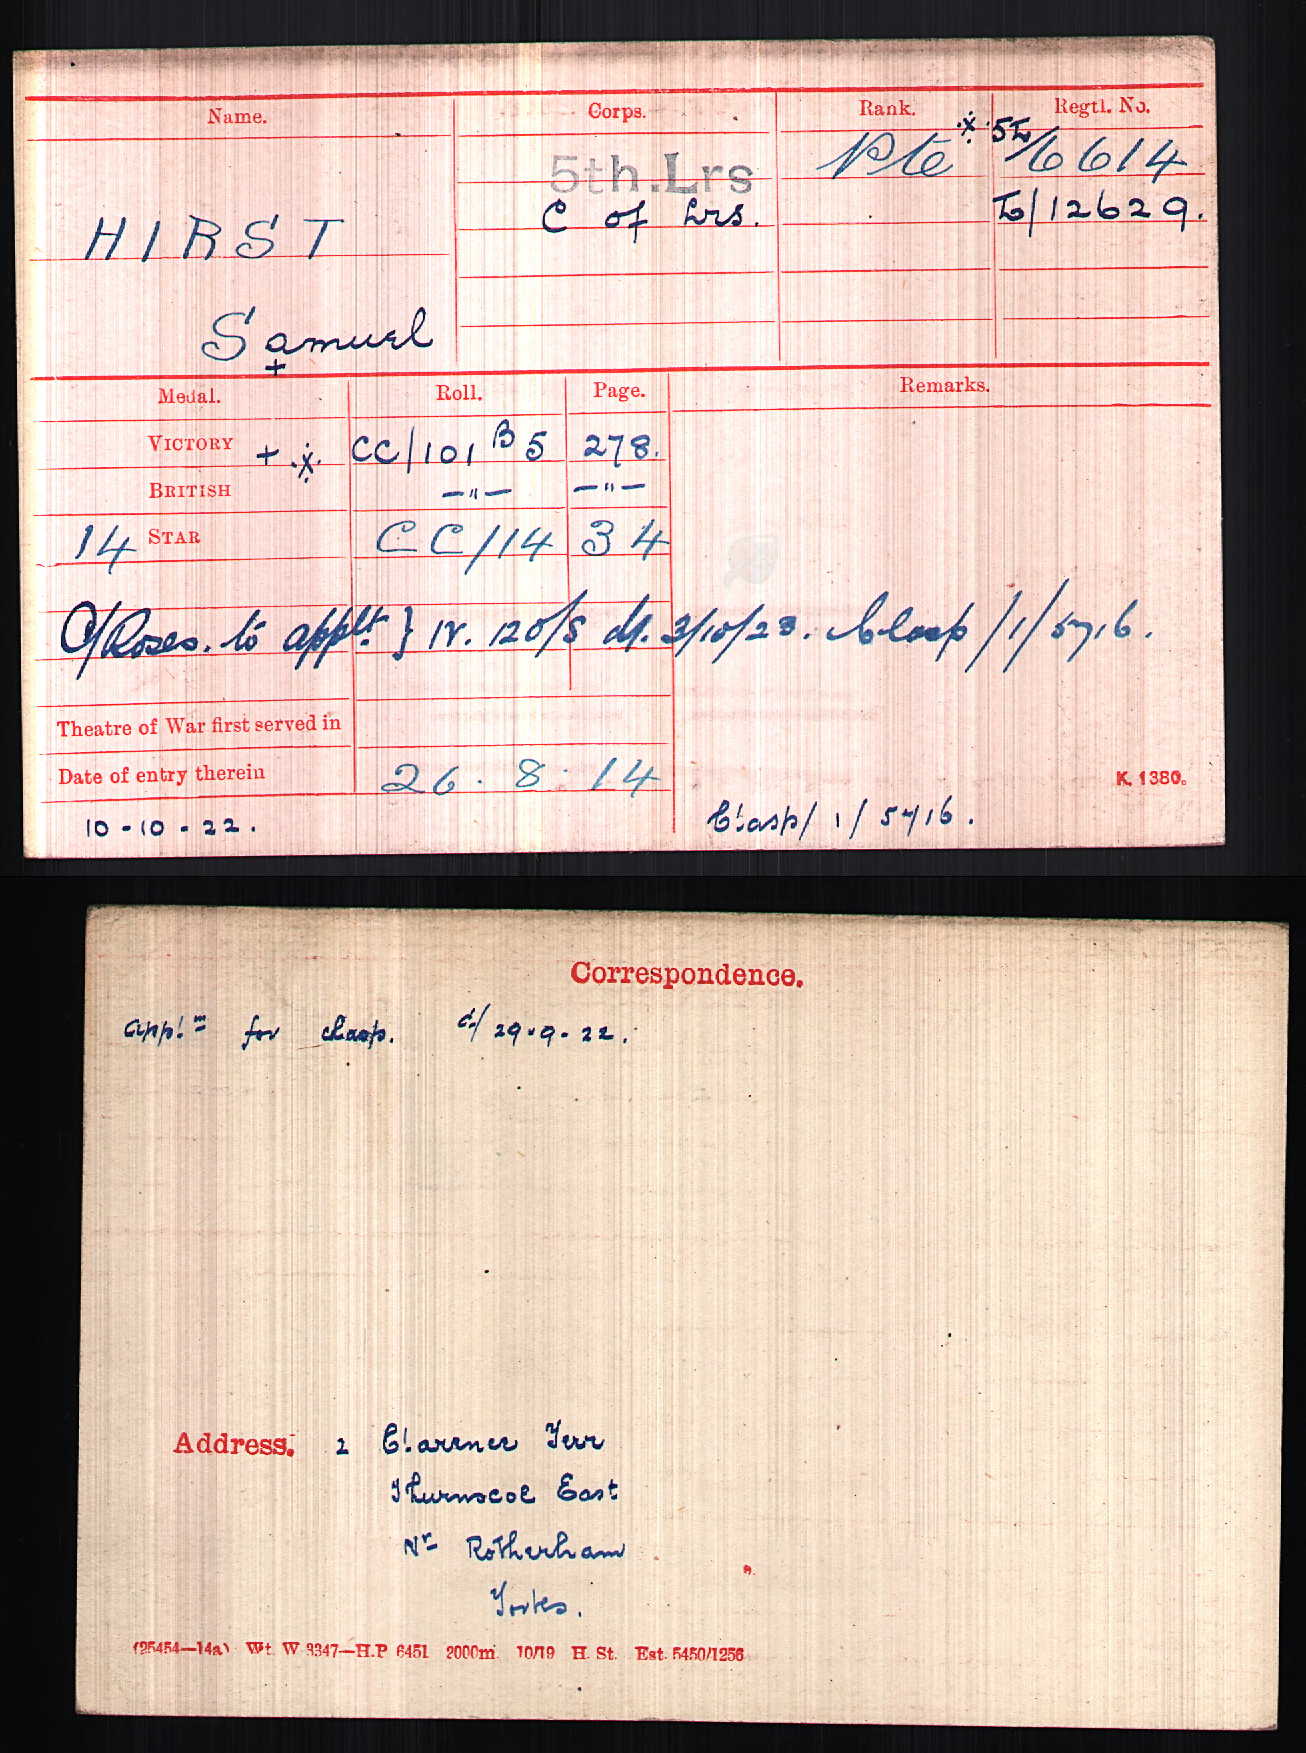 Name. Corps. Rank. Regtl. No.
5th.Lrs Pte ※ 5L/6614
HIRST C of Lrs. L/12629.
Samuel
+
Medal. Roll. Page. Remarks.
VICTORY + ※ CC/101 B 5 278.
BRITISH —"— —"—
14 STAR CC/14 34
O/Roses. to applt. } IV. 120/S d/. 3/10/23. Clasp/1/5716.
Theatre of War first served in
Date of entry therein 26.8.14
K. 1380.
10-10-22. Clasp/1/5716.
Correspondence.
appln for clasp. d/ 29-9-22.
Address. 2 Clarence Terr
Thurnscoe East
Nr Rotherham
Yorks.
(25454—14a) Wt. W 3347—H.P 6451 2000m. 10/19 H. St. Est. 5450/1256